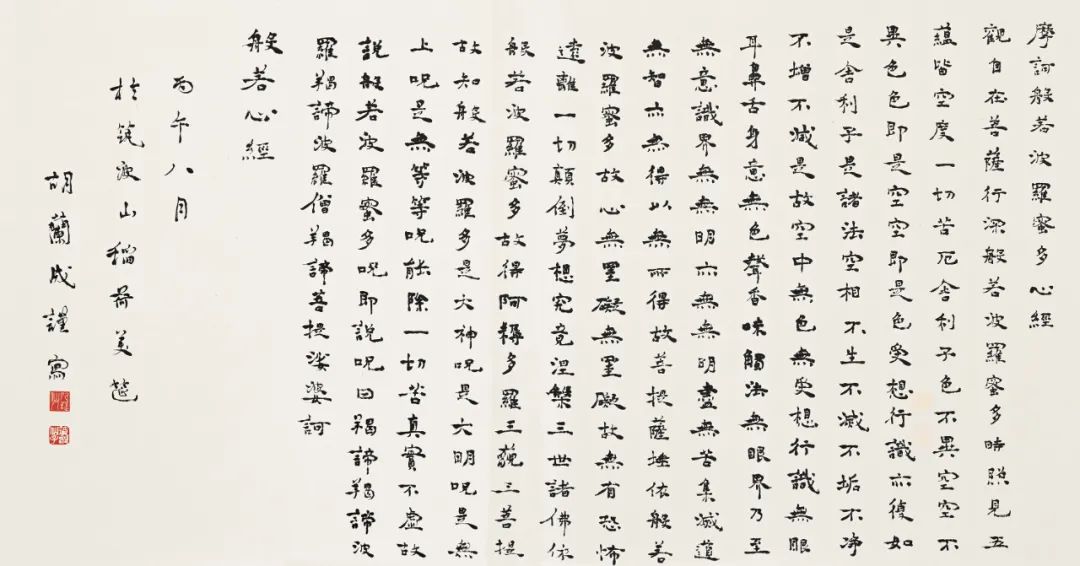 摩訶般若波羅蜜多心經
觀自在菩薩行深般若波羅蜜多時照見五
蘊皆空度一切苦厄舍利子色不異空空不
異色色即是空空即是色受想行識亦復如
是舍利子是諸法空相不生不滅不垢不淨
不增不減是故空中無色無受想行識無眼
耳鼻舌身意無色聲香味觸法無眼界乃至
無意識界無無明亦無無明盡無苦集滅道
無智亦無得以無所得故菩提薩埵依般若
波羅蜜多故心無罣礙無罣礙故無有恐怖
遠離一切顛倒夢想究竟涅槃三世諸佛依
般若波羅蜜多故得阿耨多羅三藐三菩提
故知般若波羅多是大神呪是大明呪是無
上呪是無等等呪能除一切苦真實不虛故
說般若波羅蜜多呪即說呪曰羯諦羯諦波
羅羯諦波羅僧羯諦菩提娑婆訶
般若心經
丙午八月
於筑波山稲荷美筵
胡蘭成謹寫